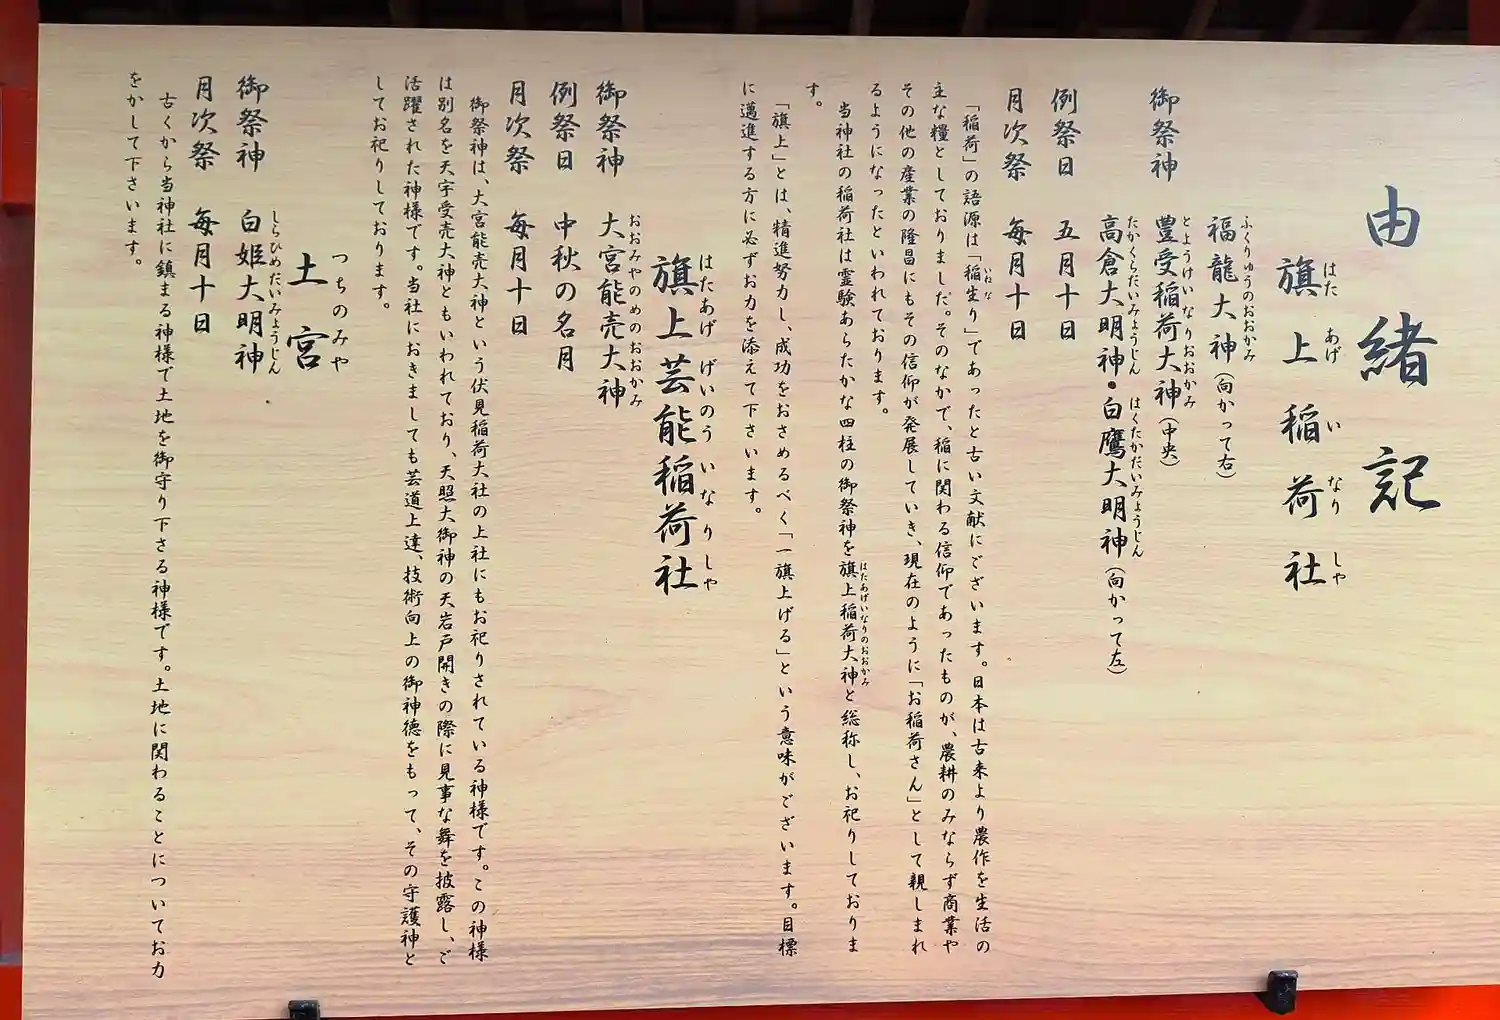 由緒記
旗上稲荷社
はたあげいなりしや
福龍大神(向かって右)
ふくりゅうのおおかみ
豊受稲荷大神(中央)
とようけいなりおおかみ
御祭神
高倉大明神・白鷹大明神(向かって左)
たかくらだいみょうじん はくたかだいみょうじん
例祭日 五月十日
月次祭 毎月十日
「稲荷」の語源は「稲生り」であったと古い文献にございます。日本は古来より農作を生活の
いねな
主な糧としておりました。そのなかで、稲に関わる信仰であったものが、農耕のみならず商業や
その他の産業の隆昌にもその信仰が発展していき、現在のように「お稲荷さん」として親しまれ
るようになったといわれております。
当神社の稲荷社は霊験あらたかな四柱の御祭神を旗上稲荷大神と総称し、お祀りしておりま
はたあげいなりのおおかみ
す。
「旗上」とは、精進努力し、成功をおさめるべく「一旗上げる」という意味がございます。目標
に邁進する方に必ずお力を添えて下さいます。
旗上芸能稲荷社
はたあげ げいのう いなりしや
御祭神 大宮能売大神
おおみやのめのおおかみ
例祭日 中秋の名月
月次祭 毎月十日
御祭神は、大宮能売大神という伏見稲荷大社の上社にもお祀りされている神様です。この神様
は別名を天宇受売大神ともいわれており、天照大御神の天岩戸開きの際に見事な舞を披露し、ご
活躍された神様です。当社におきましても芸道上達、技術向上の御神徳をもって、その守護神と
してお祀りしております。
土宮
つちのみや
御祭神 白姫大明神
しらひめだいみょうじん
月次祭 毎月十日
古くから当神社に鎮まる神様で土地を御守り下さる神様です。土地に関わることについてお力
をかして下さいます。